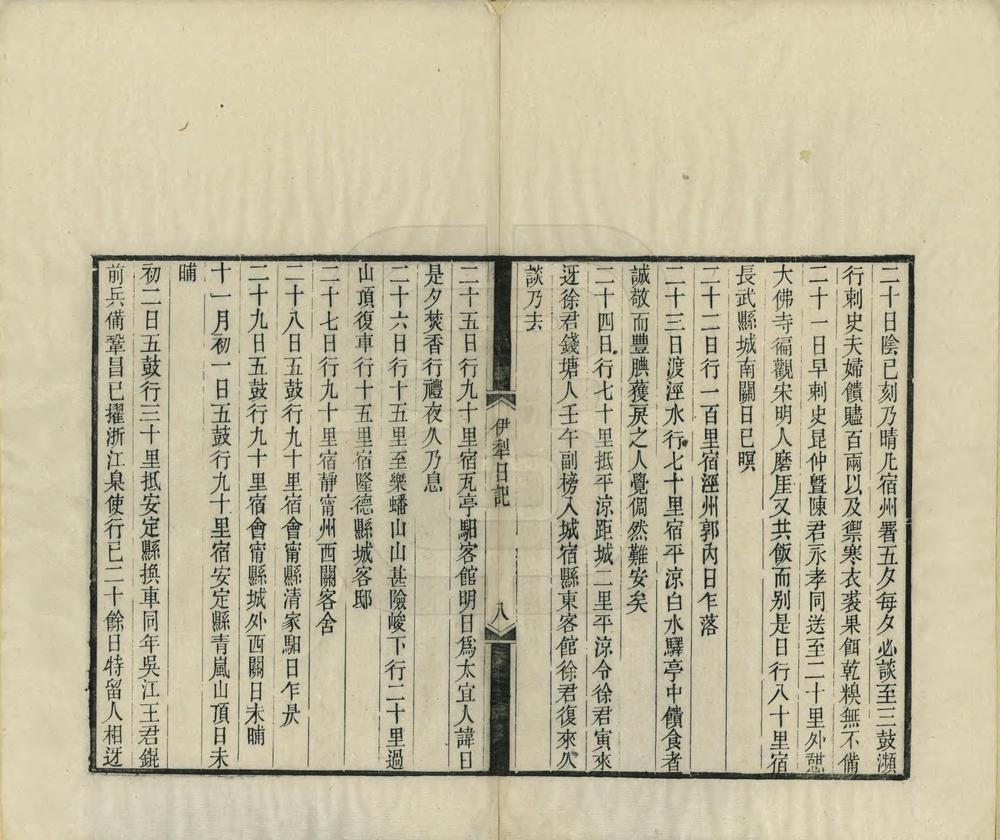 二十日陰巳刻乃晴凡宿州署五夕每夕必談至三鼓瀕
行刺史夫婦饋贐百兩以及禦寒衣裘果餌乾糗無不備
二十一日早刺史昆仲暨陳君永孝同送至二十里外憇
大佛寺徧觀宋明人磨厓又共飯而别是日行八十里宿
長武縣城南關日巳暝
二十二日行一百里宿涇州郭內日乍落
二十三日渡涇水行七十里宿平涼白水驛亭中饋食者
誠敬而豐腆獲戾之人覺倜然難安矣
二十四日行七十里抵平涼距城二里平涼令徐君寅來
迓徐君錢塘人壬午副榜入城宿縣東客館徐君復來久
談乃去
伊犁日記
八
二十五日行九十里宿瓦亭馹客館明日爲太宜人諱日
是夕焚香行禮夜久乃息
二十六日行十五里至樂蟠山山甚險峻下行二十里過
山頂復車行十五里宿隆德縣城客邸
二十七日行九十里宿靜甯州西關客舍
二十八日五鼓行九十里宿會甯縣清家馹日乍昃
二十九日五鼓行九十里宿會甯縣城外西關日未晡
十一月初一日五鼓行九十里宿安定縣青嵐山頂日未
晡
初二日五鼓行三十里抵安定縣換車同年吳江王君錕
前兵備鞏昌已擢浙江臬使行已二十餘日特留人相迓